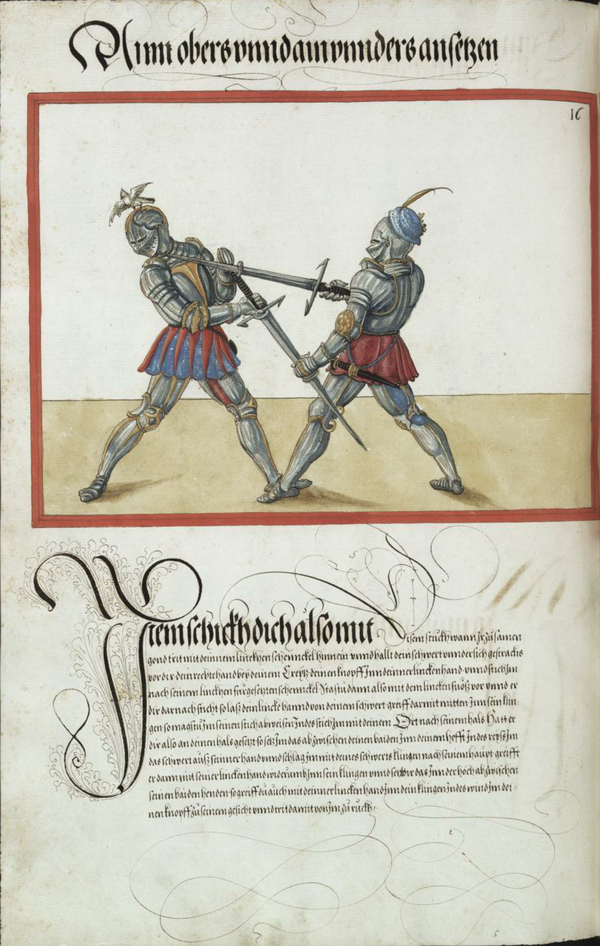 Ainn obers vnnd ain vnnders ansetzen
16
Item schickh dich also mit disem stuckh wann Jr zusamen
gond trit mit deinnem linckhen schennckel hinnein vnnd hallt dein schwert vnndersich gestrackhs
vor dir dein recht hannd bey deinem Creytz deinen knopff Jnn deinner linckenhand vnnd stich Jm
nach seinem linckhen fürgesetzten schennckel Stast du dann also mit dem lincken fuoß vor vnnd er
dir darnach sticht so laß dein lincke hannd von deinem schwert greiff darmit mitten Jnn sein klin
gen so magstu Jm seinen stich abweisen Jndes stich Jm mit deinem Ort nach seinem hals Hatt er
dir also an deinen hals gesetzt so setz Jm das ab zwischen deinen baiden Jnn deinem hefft Jndes
das schwert auß seinner hannd vnnd schlag Jm mit deines schwerts klingen nach seinem haupt greifft
er dann mit seiner lincken hand Jnn sein klingen vnnd setzt dir das Jnn der hoch ab zwischen
seinen baiden henden so greiff du auch mit deinner lincken hannd Jnn dein klingen Jndes wind Jm dei
nen knopff zu seinem gesicht vnnd trit damit von Jm zu ruckh